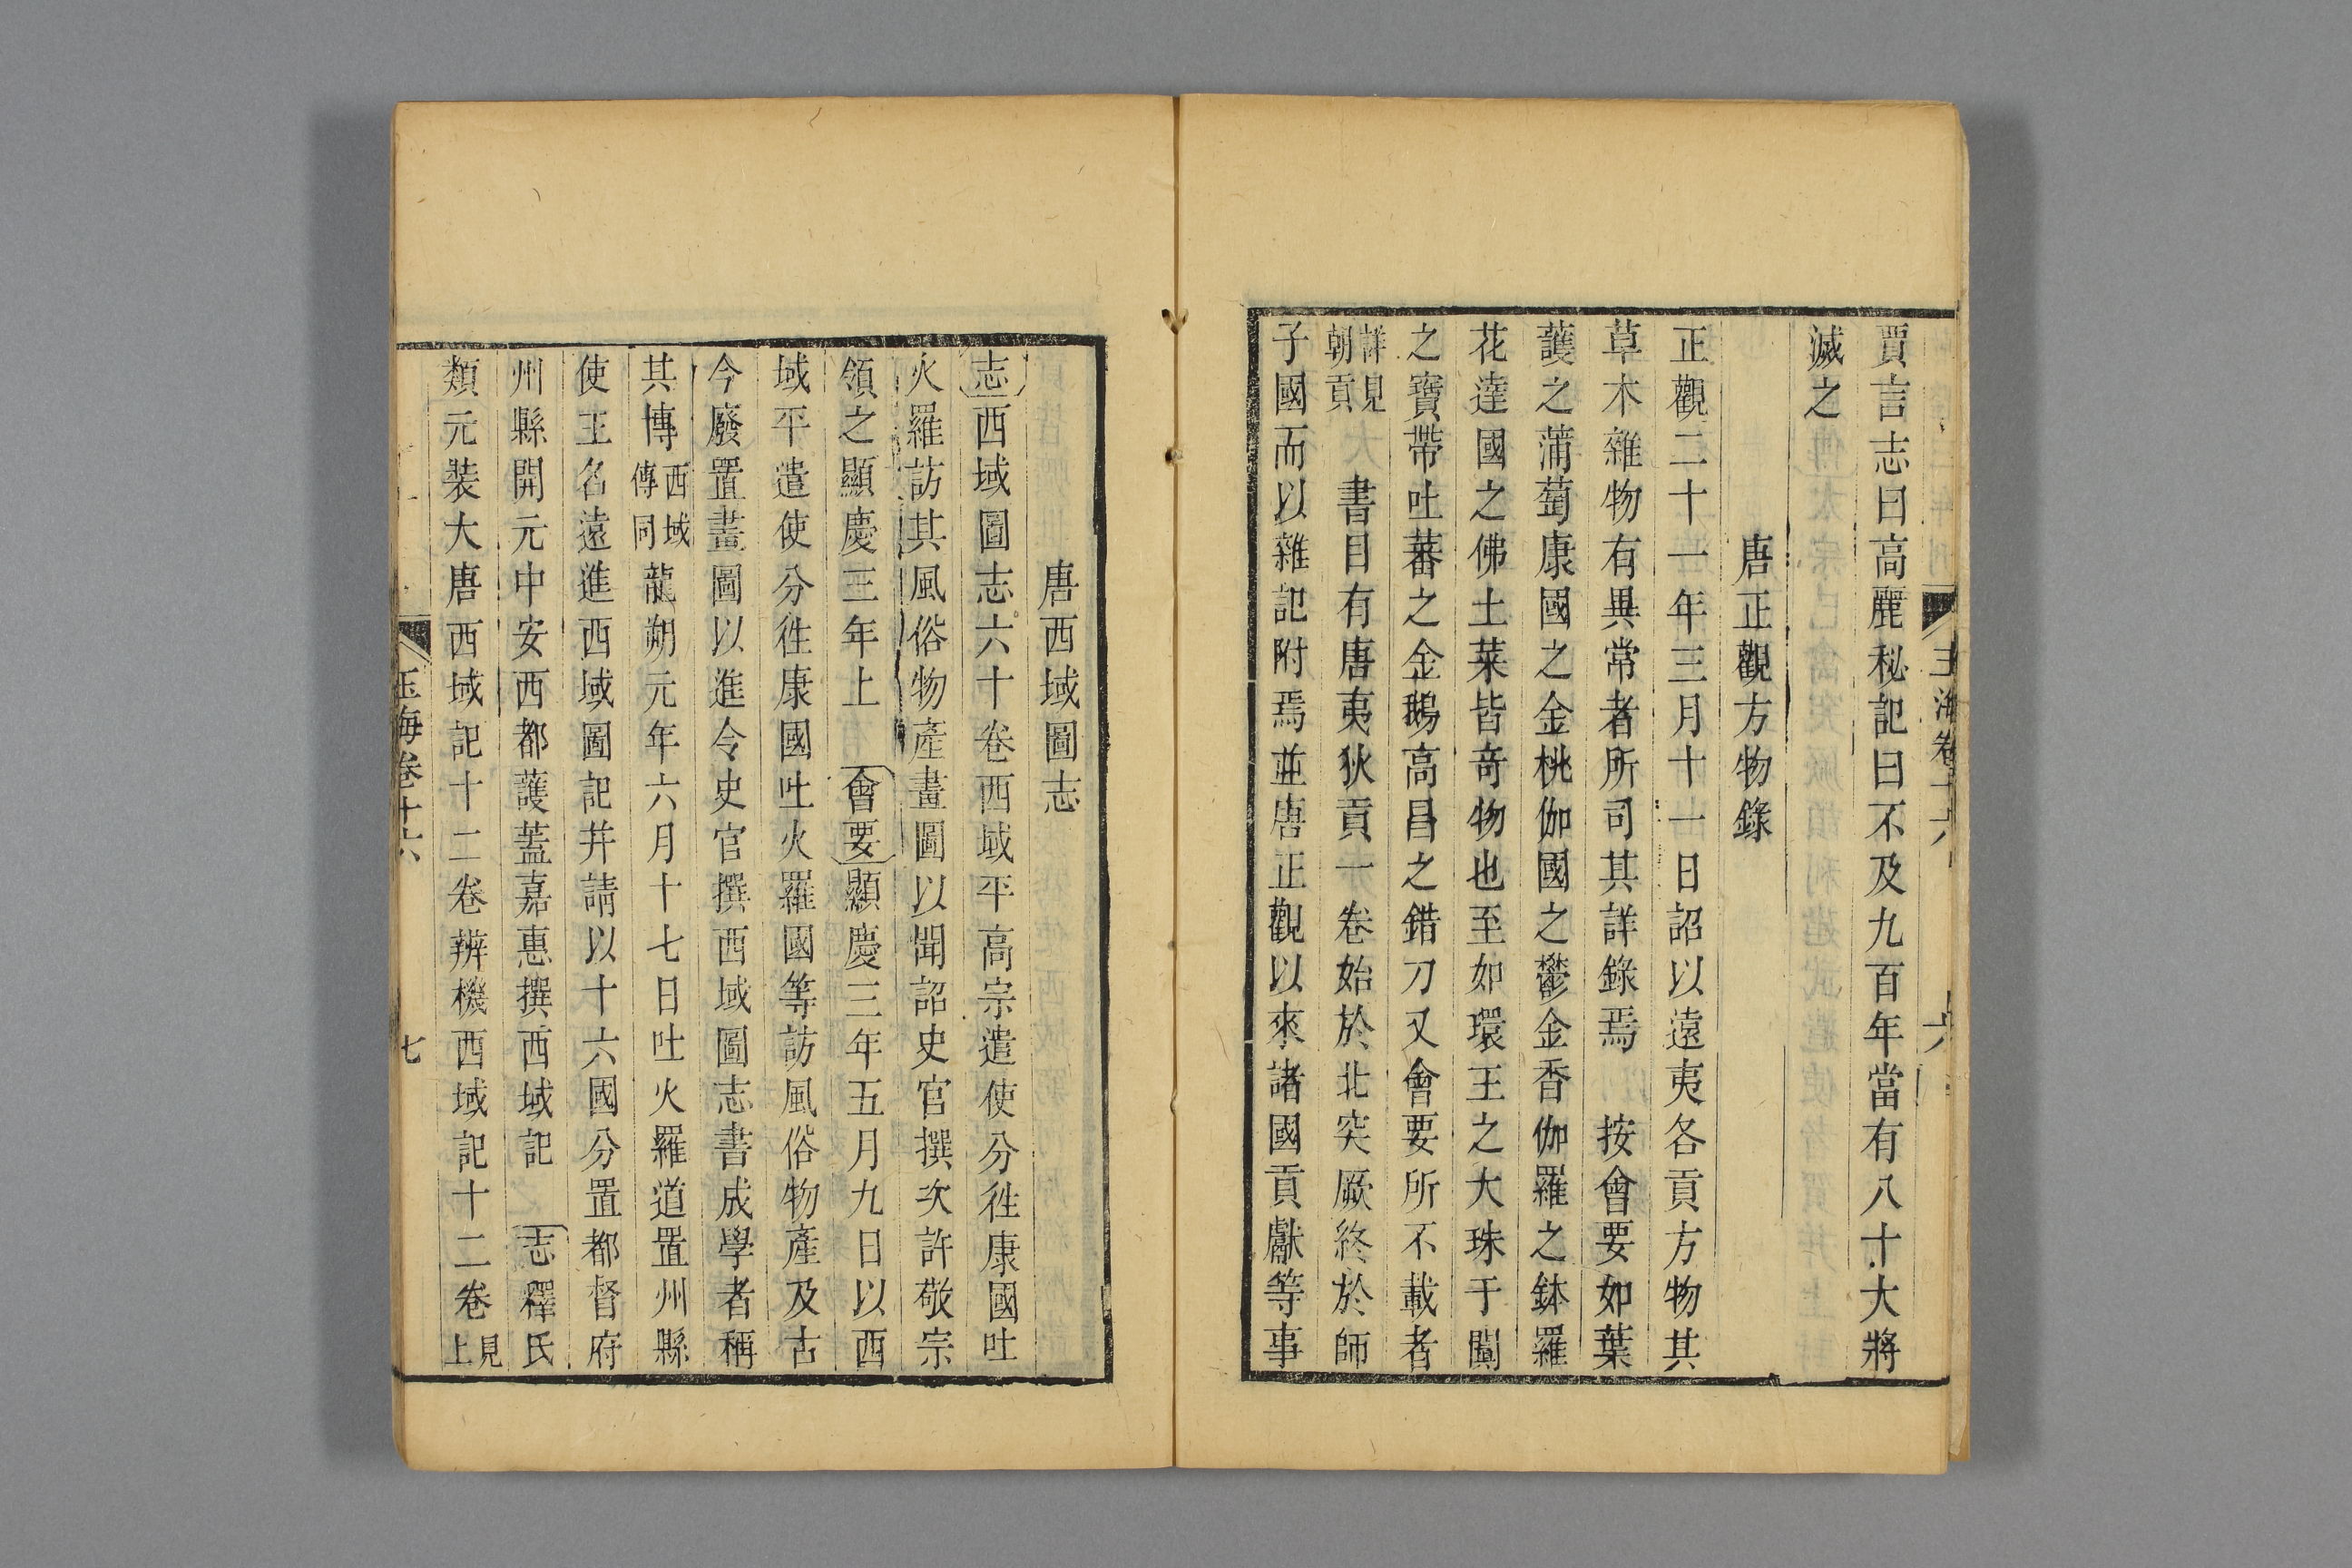 賈言志曰高麗秘記曰不及九百年當有八十大將
滅之
唐正觀方物錄
正觀二十一年三月十一日詔以遠夷各貢方物其
草木雜物有異常者所司其詳錄焉　按會要如葉
護之蒲萄康國之金桃伽國之鬱金香伽羅之鉢羅
花達國之佛土菜皆竒物也至如環王之大珠于闐
之寶帶吐蕃之金鵝高昌之錯刀又會要所不載者
詳見朝貢　書目有唐夷狄貢一卷始於北突厥終於師
子國而以雜記附焉並唐正觀以來諸國貢獻等事
玉海卷十六　六
唐西域圖志
志西域圖志六十卷西域平高宗遣使分往康國吐
火羅訪其風俗物產畫圖以聞詔史官撰次許敬宗
領之顯慶三年上　會要顯慶三年五月九日以西
域平遣使分往康國吐火羅國等訪風俗物產及古
今廢置畫圖以進令史官撰西域圖志書成學者稱
其博西域傳同龍朔元年六月十七日吐火羅道置州縣
使王名遠進西域圖記并請以十六國分置都督府
州縣開元中安西都護蓋嘉惠撰西域記　志釋氏
類元裝大唐西域記十二卷辨機西域記十二卷見上
玉海卷十六　七